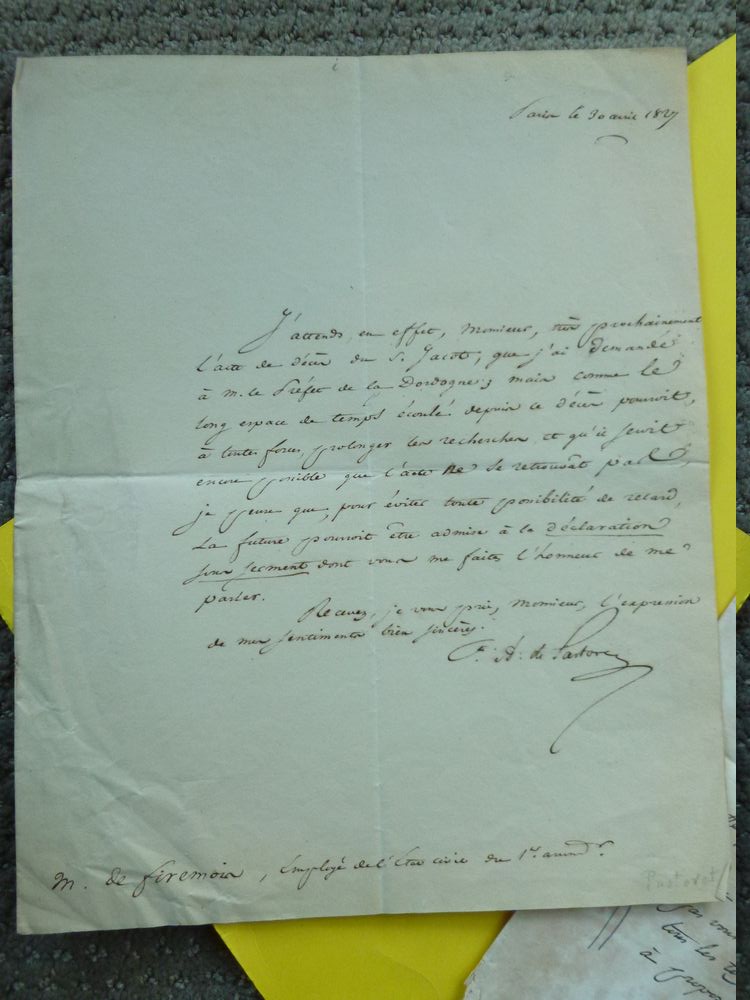 Paris le 30 avril 1827
J'attends, en effet, Monsieur, très prochainement
l'acte de décès du S. Jacot, que j'ai demandé
à M. le Préfet de la Dordogne; mais comme le
long espace de temps écoulé depuis ce décès pourroit,
à toute force, prolonger les recherches, et qu'il seroit
encore possible que l'acte ne se retrouvât pas,
je pense que, pour éviter toute possibilité de retard,
la future pourroit être admise à la déclaration
sous serment dont vous me faites l'honneur de me
parler.
Recevez, je vous prie, Monsieur, l'expression
de mes sentiments bien sincères.
A. de Pastoret
M. de , Employé de l'Etat civil du 1er arrondt.
Pastoret
tous les
à propos